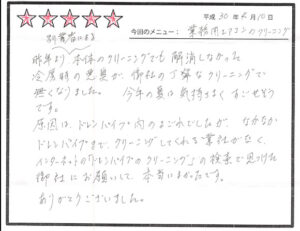 平成 30年 5月10日
今回のメニュー： 業務用エアコンのクリーニング
別業者による
昨年より 本体のクリーニングでも 解消しなかった
冷房時の悪臭が、御社の丁寧なクリーニングで
無くなりました。 今年の夏は気持ちよく すごせそう
です。
原因は、ドレンパイプ内のよごれでしたが、なかなか
ドレンパイプまで、クリーニングしてくれる業社がなく、
インターネットの「ドレンパイプのクリーニング」の検索で見つけた
御社にお願いして、本当によかったです。
ありがとうございました。